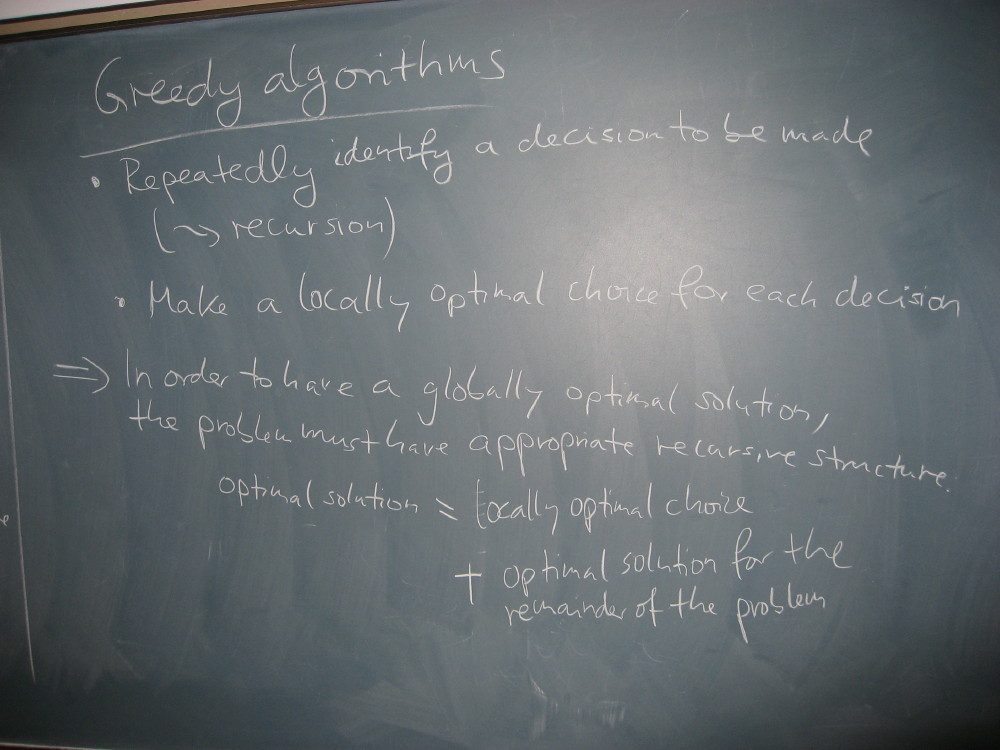 Greedy algorithms
• Repeatedly identify a decision to be made
(⇝ recursion)
• Make a locally optimal choice for each decision
⇒ In order to have a globally optimal solution,
the problem must have appropriate recursive structure:
optimal solution = locally optimal choice
+ optimal solution for the
remainder of the problem